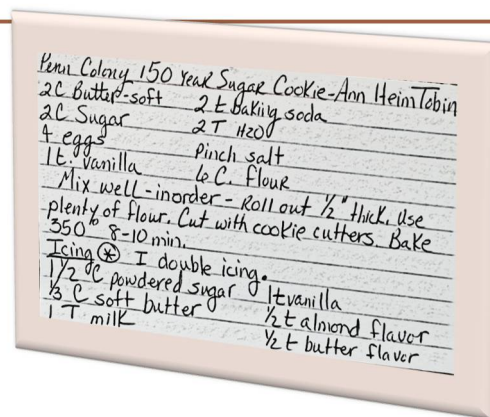 Penn Colony 150 Year Sugar Cookie-Ann Heim Tobin
2C Butter-soft 2 t baking soda
2C Sugar 2 T H2O
4 eggs Pinch salt
1t. vanilla 6 C. flour
Mix well-inorder-Roll out 1/2" thick. Use
plenty of flour. Cut with cookie cutters. Bake
350° 8-10 min.
Icing * I double icing.
1 1/2 C powdered sugar 1t vanilla
1/3 C soft butter 1/2 t almond flavor
1 T milk 1/2 t butter flavor